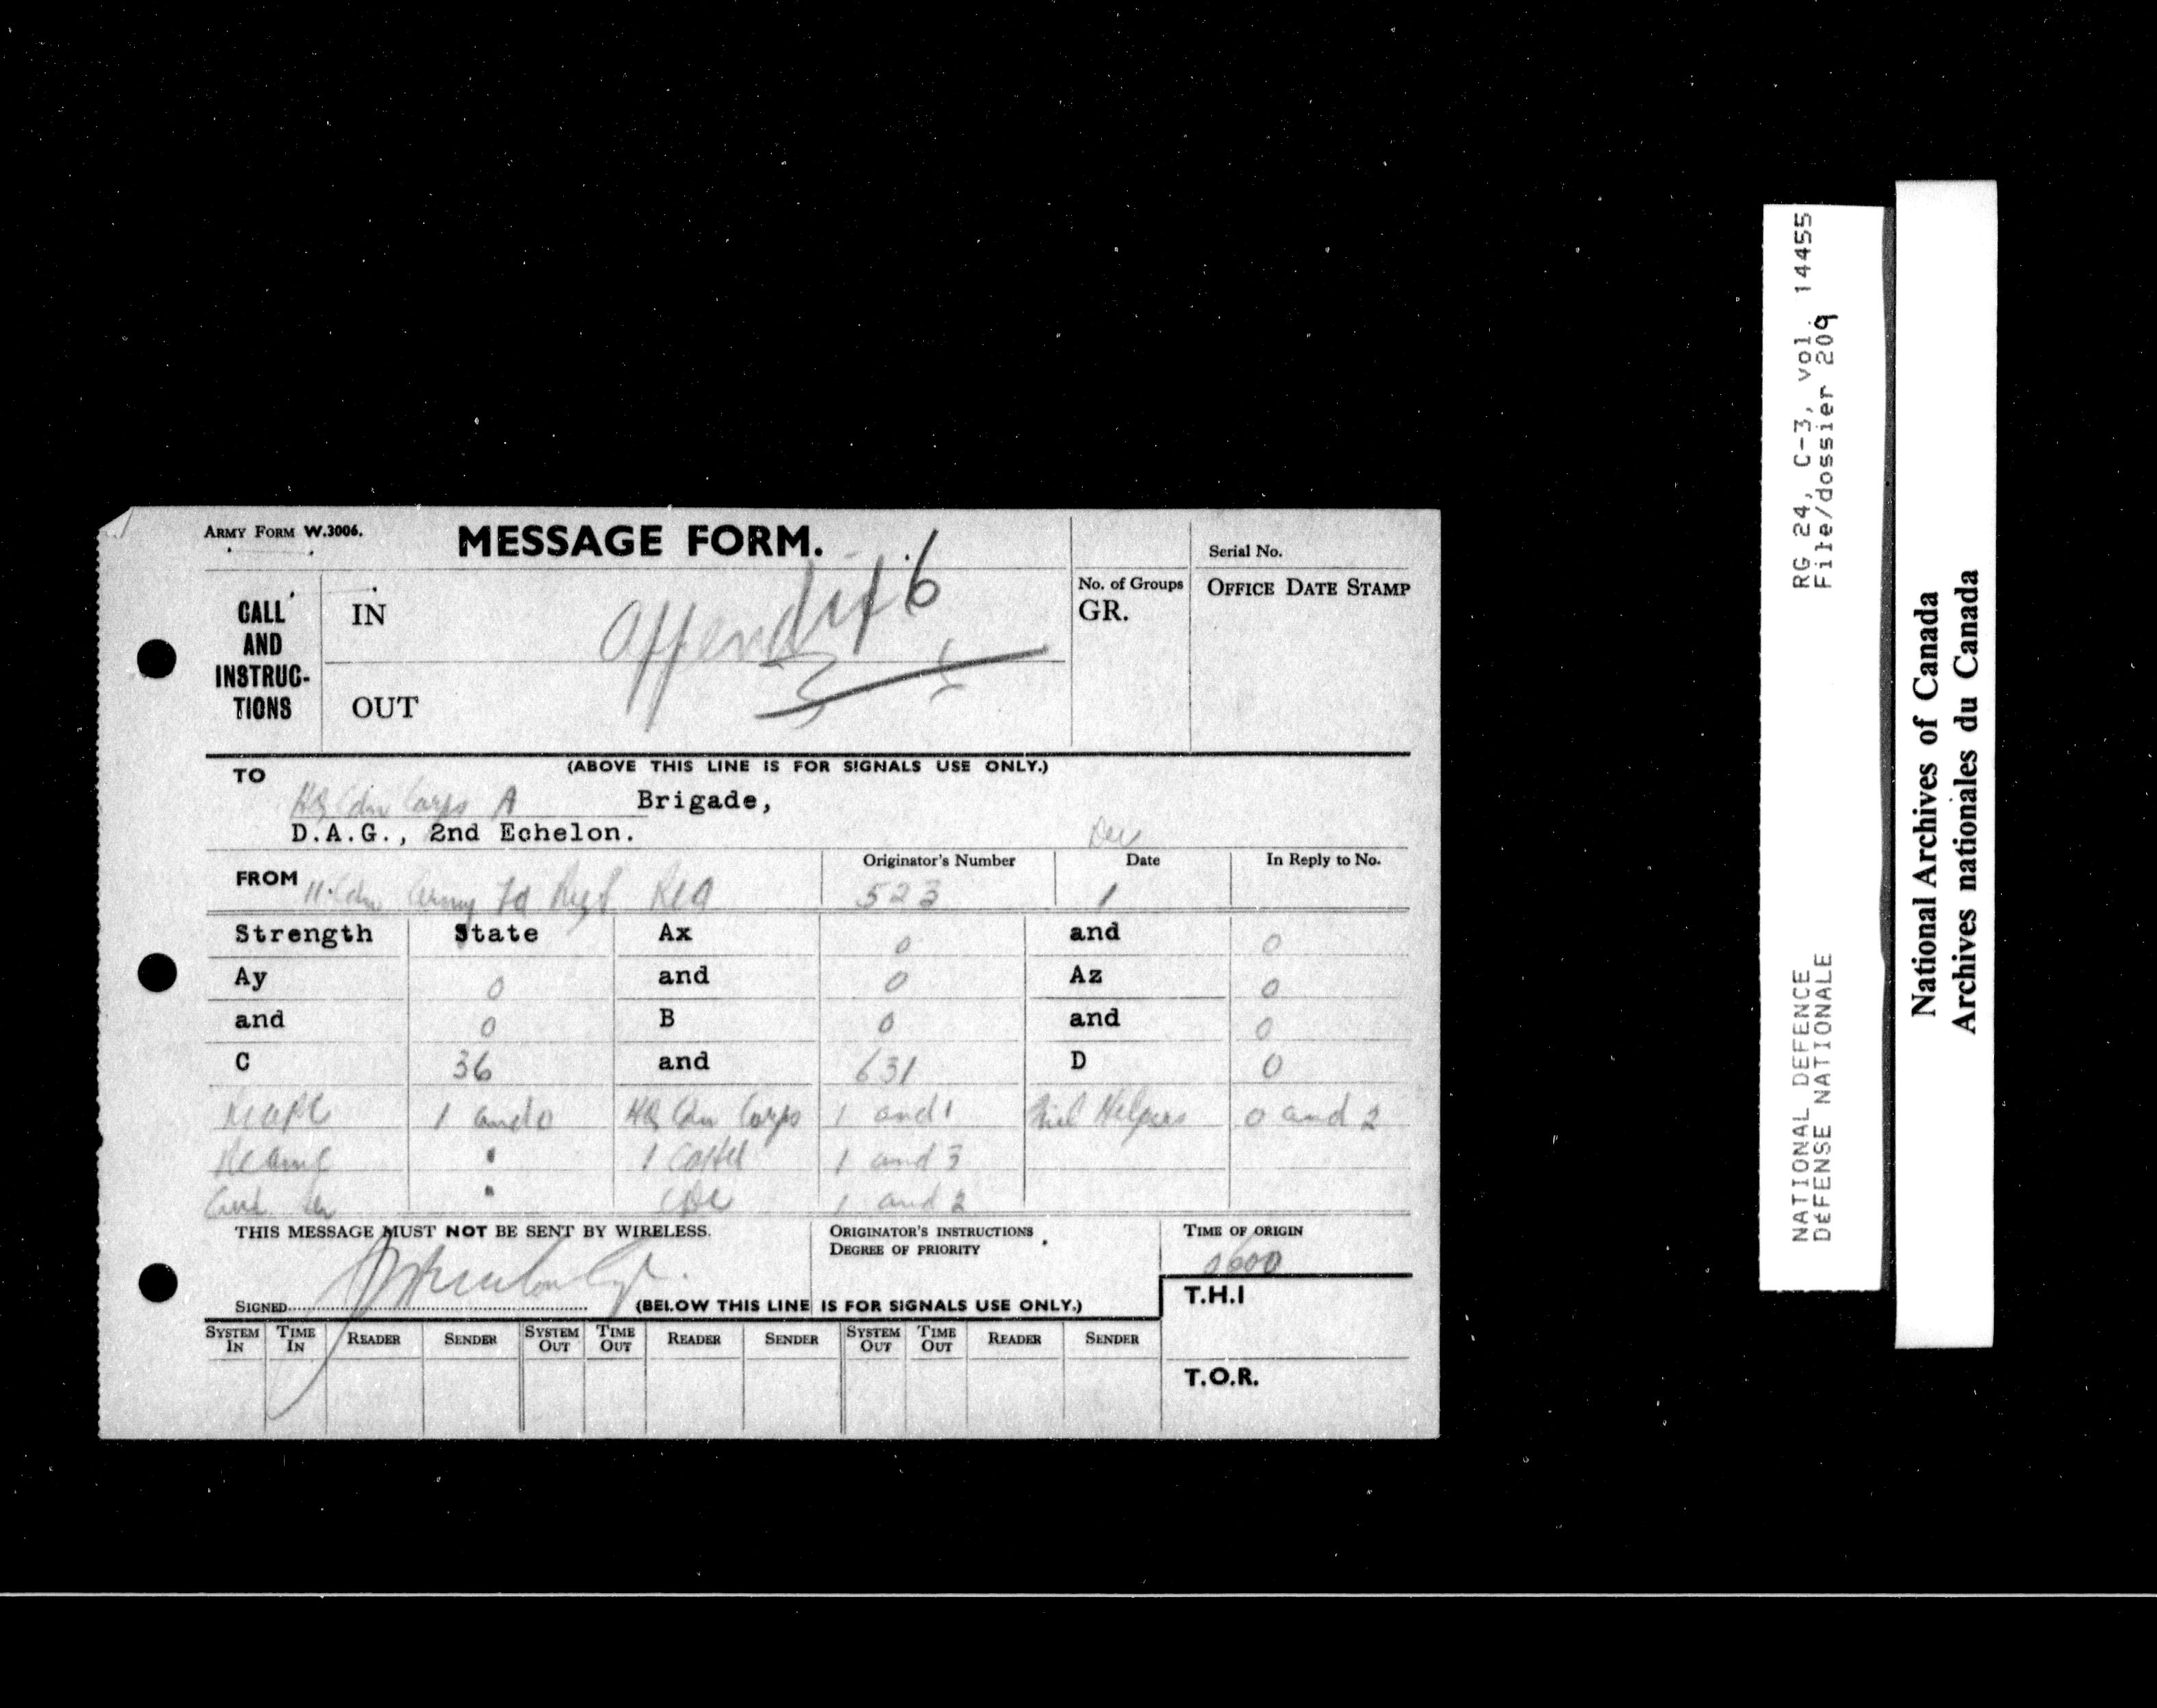 ARMY FORM W.3006.
MESSAGE FORM.
Serial No.
CALL AND INSTRUC- TIONS
IN
OUT
Appendix 6
No. of Groups
GR.
OFFICE DATE STAMP
(ABOVE THIS LINE IS FOR SIGNALS USE ONLY.)
TO
HQ Cdn Corps A Brigade,
D.A.G., 2nd Echelon.
FROM 11 Cdn Army Fd Regt RCA
Originator's Number 523
Dec
Date 1
In Reply to No.
Strength State Ax 0 and 0
Ay 0 and 0 Az 0
and 0 B 0 and 0
C 36 and 631 D 0
1 and 0 HQ Cdn Corps 1 and 1 Helpers 0 and 2
RCAMC " 1 1 and 3
" 1 and 2
THIS MESSAGE MUST NOT BE SENT BY WIRELESS.
ORIGINATOR'S INSTRUCTIONS
DEGREE OF PRIORITY
TIME OF ORIGIN
0600
SIGNED
(BELOW THIS LINE IS FOR SIGNALS USE ONLY.)
T.H.I
SYSTEM IN TIME IN READER SENDER SYSTEM OUT TIME OUT READER SENDER SYSTEM OUT TIME OUT READER SENDER
T.O.R.
RG 24, C-3, vol. 14455
File/dossier 209
NATIONAL DEFENCE
DÉFENSE NATIONALE
National Archives of Canada
Archives nationales du Canada